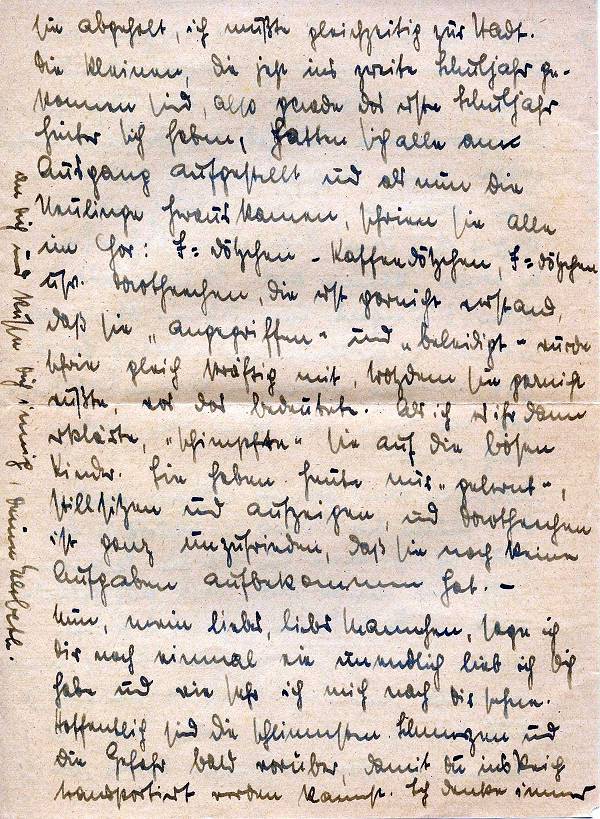 sie abgeholt, ich mußte gleichzeitig zur Stadt.
Die Kleinen, die jetzt ins zweite Schuljahr ge-
kommen sind, also gerade das erste Schuljahr
hinter sich haben, hatten sich alle am
Ausgang aufgestellt und als nun die
Neulinge herauskamen, schrien sie alle
im Chor: I=dötzchen - Kaffeedötzchen, I=dötzchen
usw. Dorothenchen, die erst garnicht verstand,
daß sie „angegriffen" und „beleidigt" wurde
schrie gleich kräftig mit, trotzdem sie garnicht
wußte, was das bedeutete. Als ich es ihr dann
erklärte, „schimpfte" sie auf die bösen
Kinder. Sie haben heute nur „gelernt",
stillsitzen und aufzeigen, und Dorothenchen
ist ganz unzufrieden, daß sie noch keine
Aufgaben aufbekommen hat. –
Nun, mein lieber, liebs Mannchen, sage ich
Dir noch einmal wie unendlich lieb ich Dich
habe und wie sehr ich mich nach Dir sehne.
Hoffentlich sind die schlimmsten Schmerzen und
die Gefahr bald vorüber, damit Du ins Reich
transportiert werden kannst. Ich denke immer
an Dich und küsse Dich innig, Deine Elsbeth.